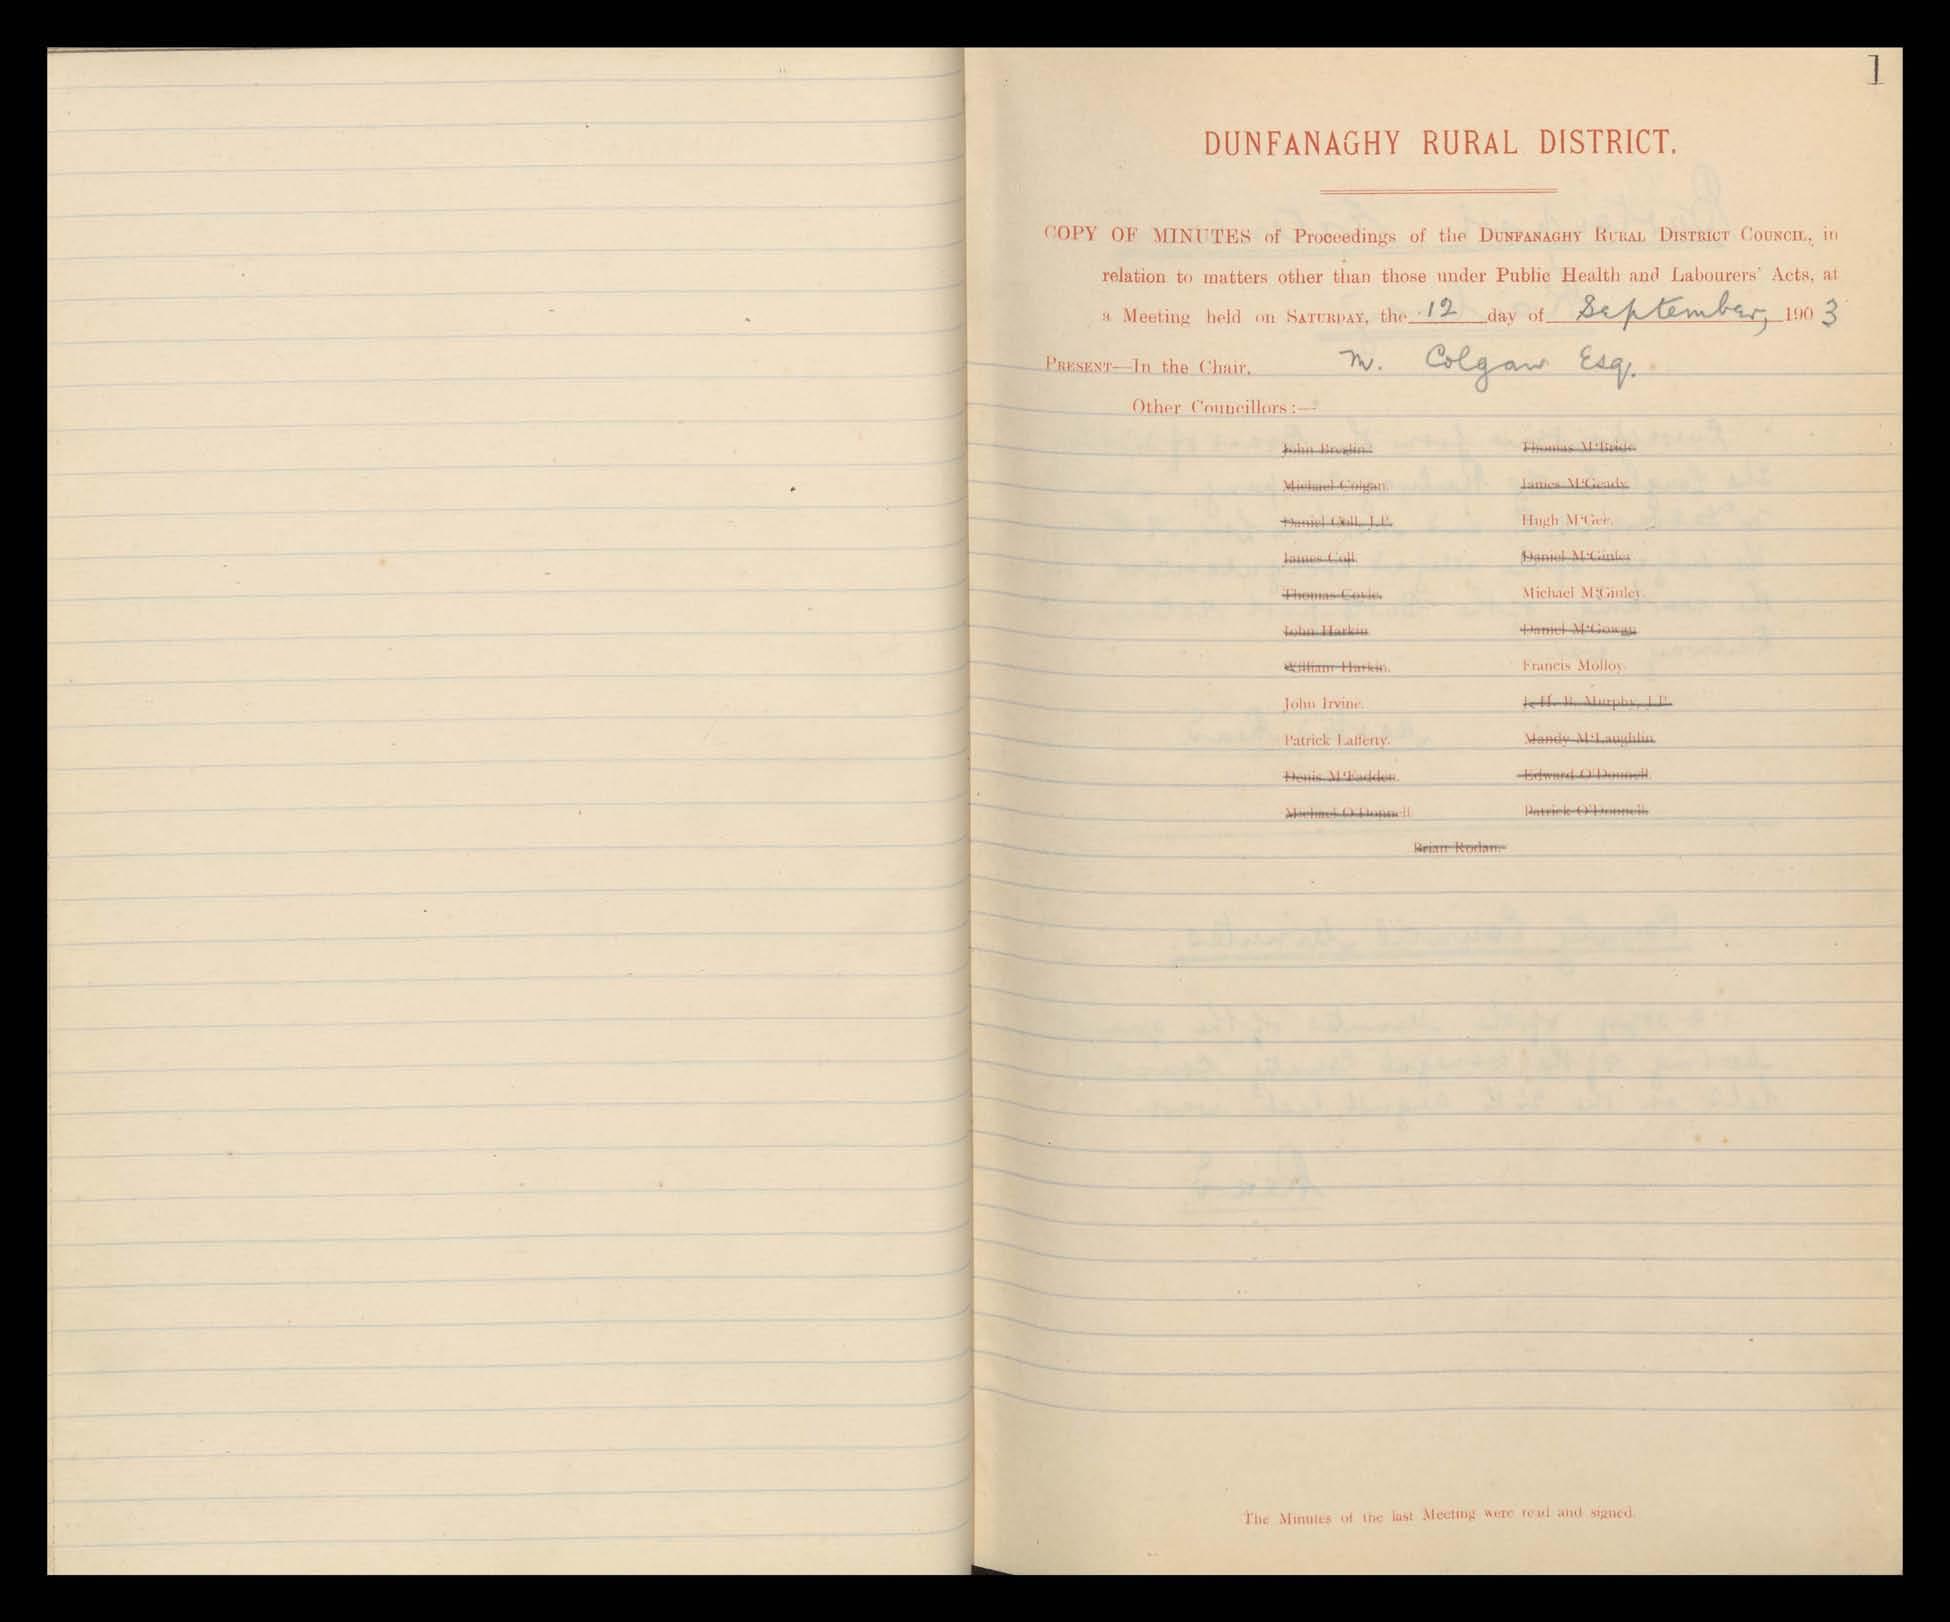 1
DUNFANAGHY RURAL DISTRICT.
COPY OF MINUTES of Proceedings of the DUNFANAGHY RURAL DISTRICT COUNCIL, in
relation to matters other than those under Public Health and Labourers' Acts, at
a Meeting held on SATURDAY, the 12 day of September, 1903
PRESENT—In the Chair, M. Colgan Esq.
Other Councillors:—
John Breslin. Thomas M'Bride.
Michael Colgan. James M'Geady.
Daniel Coll, J.P. Hugh M'Gee.
James Coll. Daniel M'Ginley
Thomas Coyle. Michael M'Ginley.
John Harkin Daniel M'Gowan
William Harkin. Francis Molloy.
John Irvine. J. H. B. Murphy, J.P.
Patrick Lafferty. Mandy M'Laughlin.
Denis M'Fadden. Edward O'Donnell.
Michael O'Donnell Patrick O'Donnell.
Brian Rodan.
The Minutes of the last Meeting were read and signed.